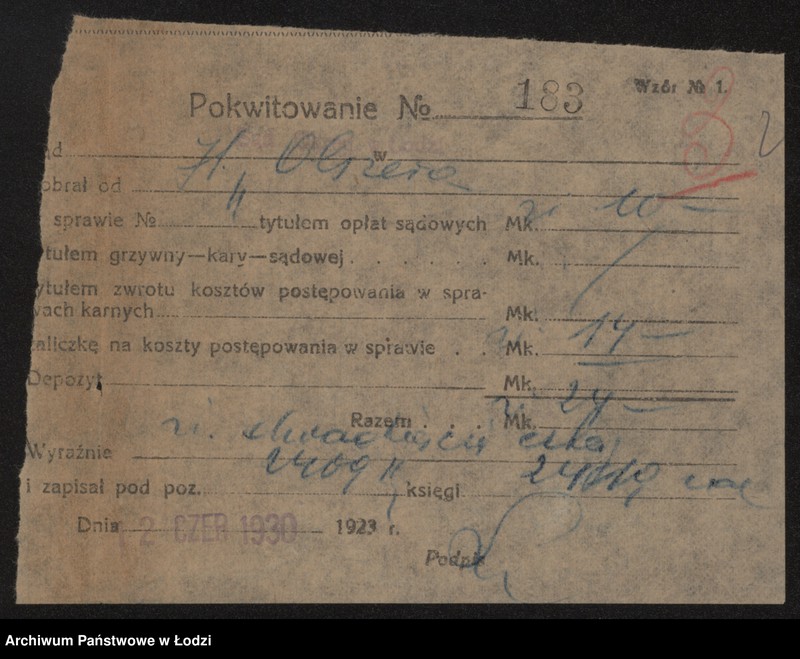 Wzór № 1.
Pokwitowanie № 183
ąd w
obrał od H. Olszera
sprawie № " tytułem opłat sądowych Mk. zł. 10 —
tułem grzywny—kary—sądowej . . . . . . Mk.
ytułem zwrotu kosztów postępowania w spra-
wach karnych Mk.
zaliczkę na koszty postępowania w sprawie . . Mk. zł. 14 —
Depozyt Mk.
Razem . . . Mk. zł. 24 —
Wyraźnie zł. dwadzieścia cztery
i zapisał pod poz. księgi
Dnia 2 CZER 1930 1923 r.
Podpis
Archiwum Państwowe w Łodzi